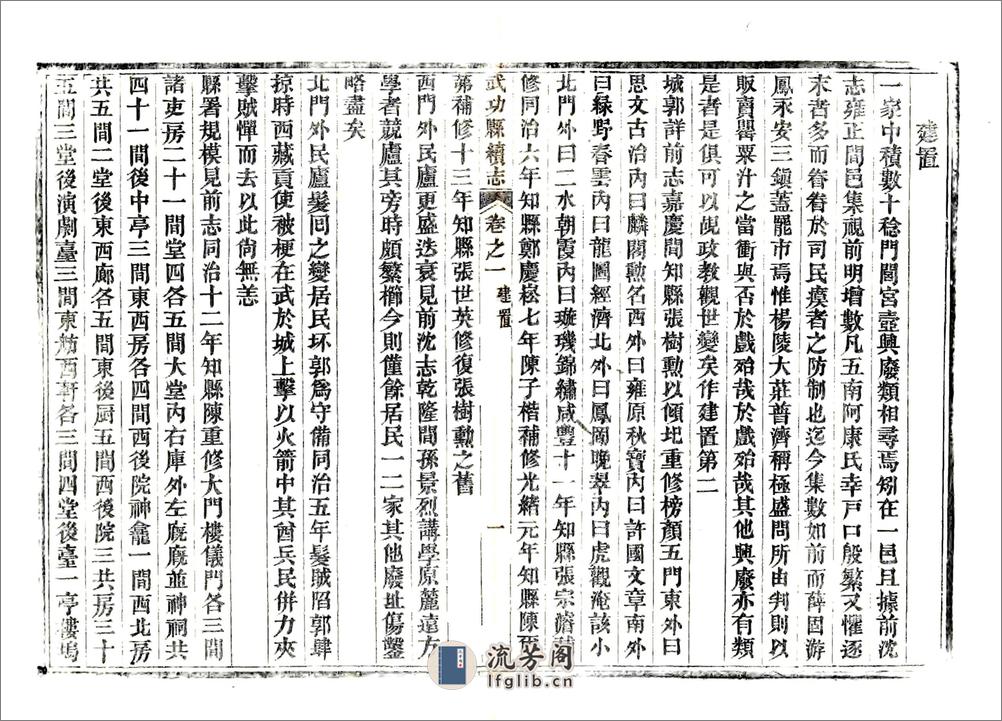 建置
一家中積數十稔門闥宮壼興廢類相尋焉矧在一邑且據前沈
志雍正間邑集視前明增數凡五南阿康氏幸戸口殷繁又懼逐
末者多而眷眷於司民瘼者之防制也迄今集數如前而薛固游
鳳永安三鎮蓋罷市焉惟楊陵大莊普濟稱極盛問所由判則以
販賣罌粟汁之當衝與否於戲殆哉於戲殆哉其他興廢亦有類
是者是俱可以覘政教觀世變矣作建置第二
城郭詳前志嘉慶間知縣張樹勲以傾圮重修榜顏五門東外曰
思文古治内曰麟閣勲名西外曰雍原秋寶内曰許國文章南外
曰綠野春雲内曰龍圖經濟北外曰鳳岡晚翠内曰虎觀淹該小
北門外曰二水朝霞内曰璇璣錦繡咸豐十一年知縣張宗
修同治六年知縣鄭慶崧七年陳子楷補修光緒元年知縣陳爾
武功縣續志 卷之一 建置 一
茀補修十三年知縣張世英修復張樹勲之舊
西門外民廬更盛迭衰見前沈志乾隆間孫景烈講學原麓遠方
學者競廬其旁時頗繁櫛今則僅餘居民一二家其他廢址傷鑿
略盡矣
北門外民廬髮回之變居民坏郭爲守備同治五年髮賊陷郭肆
掠時西藏貢使被梗在武於城上擊以火箭中其酋兵民併力夾
擊賊憚而去以此尙無恙
縣署規模見前志同治十二年知縣陳重修大門樓儀門各三間
諸吏房二十一間堂四各五間大堂内右庫外左廐廐並神祠共
四十一間後中亭三間東西房各四間西後院神龕一間西北房
共五間二堂後東西廊各五間東後厨五間西後院三共房三十
五間三堂後演劇臺三間東舫西軒各三間四堂後臺一亭樓塢
流芳阁
lfglib.cn